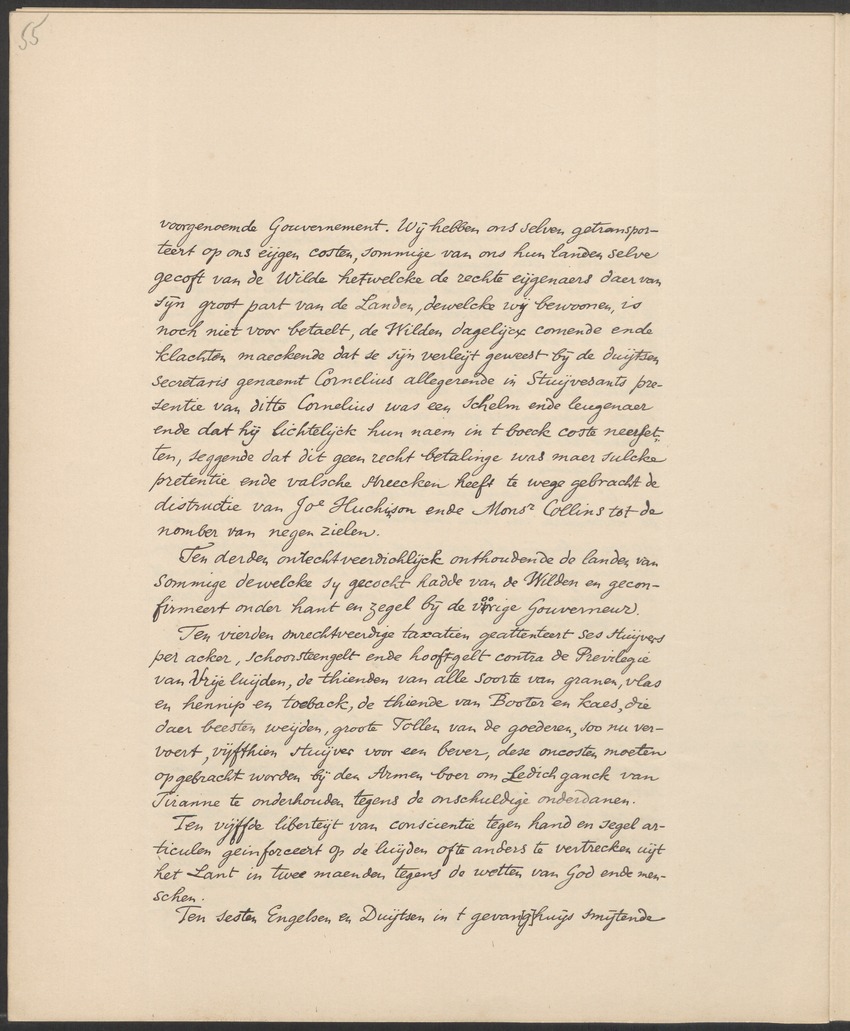 55
voorgenoemde Gouvernement. Wij hebben ons selven getranspor-
teert op ons eijgen costen, sommige van ons hun landen selve
gecoft van de Wilde hetwelcke de rechte eijgenaers daer van
sijn groot part van de Landen, dewelcke wij bewoonen, is
noch niet voor betaelt, de Wilden dagelijcx comende ende
klachten maeckende dat se sijn verleijt geweest bij de duijtsen
secretaris genaemt Cornelius allegerende in Stuijvesants pre-
sentie van ditto Cornelius was een schelm ende leugenaer
ende dat hij lichtelijck hun naem in t boeck coste neerset-
ten, seggende dat dit geen recht betalinge was maer sulcke
pretentie ende valsche streecken heeft te wege gebracht de
distructie van Joe Huchison ende Monsr Collins tot de
nomber van negen zielen.
Ten derden onrechtveerdichlijck onthoudende de landen van
sommige dewelcke sy gecocht hadde van de Wilden en gecon-
firmeert onder hant en zegel bij de vorige Gouverneur.
Ten vierden onrechtveerdige taxatien geattenteert ses stuijvers
per acker, schoorsteengelt ende hooftgelt contra de Previlegie
van Vrije luijden, de thienden van alle soorte van granen, vlas
en hennip en toeback, de thiende van Booter en kaes, die
daer beesten weijden, groote Tollen van de goederen, soo nu ver-
voert, vijfthien stuijver voor een bever, dese oncosten moeten
opgebracht worden bij den Armen boer om Ledich ganck van
Tiranne te onderhouden tegens de onschuldige onderdanen.
Ten vijffde liberteijt van conscientie tegen hand en segel ar-
ticulen geinforceert op de luijden ofte anders te vertrecken uijt
het Lant in twee maenden tegens de wetten van God ende men-
schen.
Ten sesten Engelsen en Duijtsen in t gevan[g]huijs smijtende